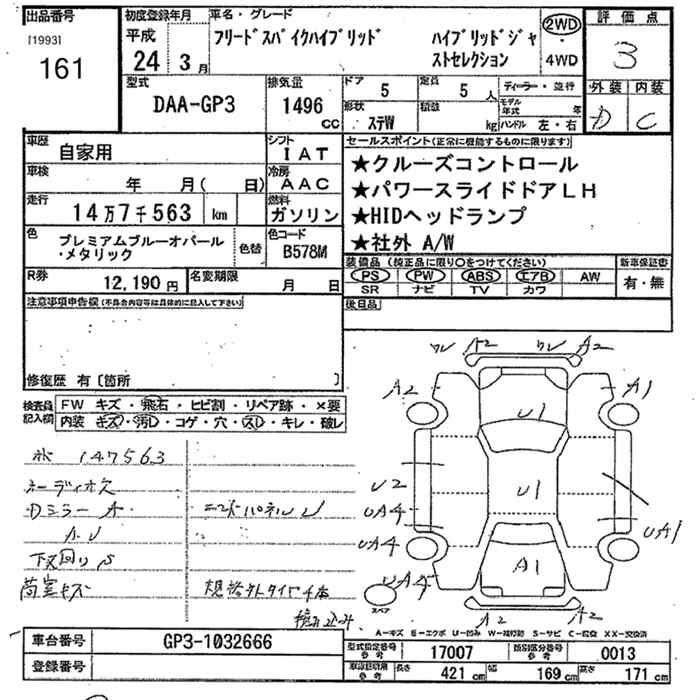 出品番号
[1993]
161
初度登録年月
平成
24年 3月
車名・グレード
フリードスパイクハイブリッド ハイブリッドジャ
ストセレクション
2WD
・
4WD
評価点
3
外装 内装
D C
型式
DAA-GP3
排気量
1496
CC
ドア
5
定員
5人
形状
ステW
積載
kg
ディーラー・並行
モデル年式 年
ハンドル 左・右
車歴
自家用
シフト
IAT
車検
年 月( 日)
冷房
AAC
走行
14万7千563 km
燃料
ガソリン
色
プレミアムブルーオパール
・メタリック
色替
色コード
B578M
R券
12,190円
名変期限
月 日
セールスポイント(正常に機能するものに限ります)
★クルーズコントロール
★パワースライドドアLH
★HIDヘッドランプ
★社外 A/W
装備品(純正品に限り○をつけてください)
PS PW ABS エアB AW
SR ナビ TV カワ
新車保証書
有・無
後日品
注意事項申告欄(不具合内容等は具体的に記入して下さい)
修復歴 有〔箇所 〕
検査員
記入欄
FW キズ・飛石・ヒビ割・リペア跡・×要
内装 キズ・汚レ・コゲ・穴・スレ・キレ・破レ
147563
オーディオ欠
Dミラー A
A.U
下廻り S
荷室キズ
規格外タイヤ4本
積み込み
ワレ A2 ワレ A2
A2 A1
U1
U2 U1
UA4 UA1
UA4
UA4 A1
スペア
A2 A2
A-キズ E-エクボ U-凹み W-補修跡 S-サビ C-腐食 XX-交換済
車台番号
GP3-1032666
登録番号
型式指定番号
参考
17007
類別区分番号
参考
0013
車検証明用
参考
長さ 421cm 幅 169cm 高さ 171cm